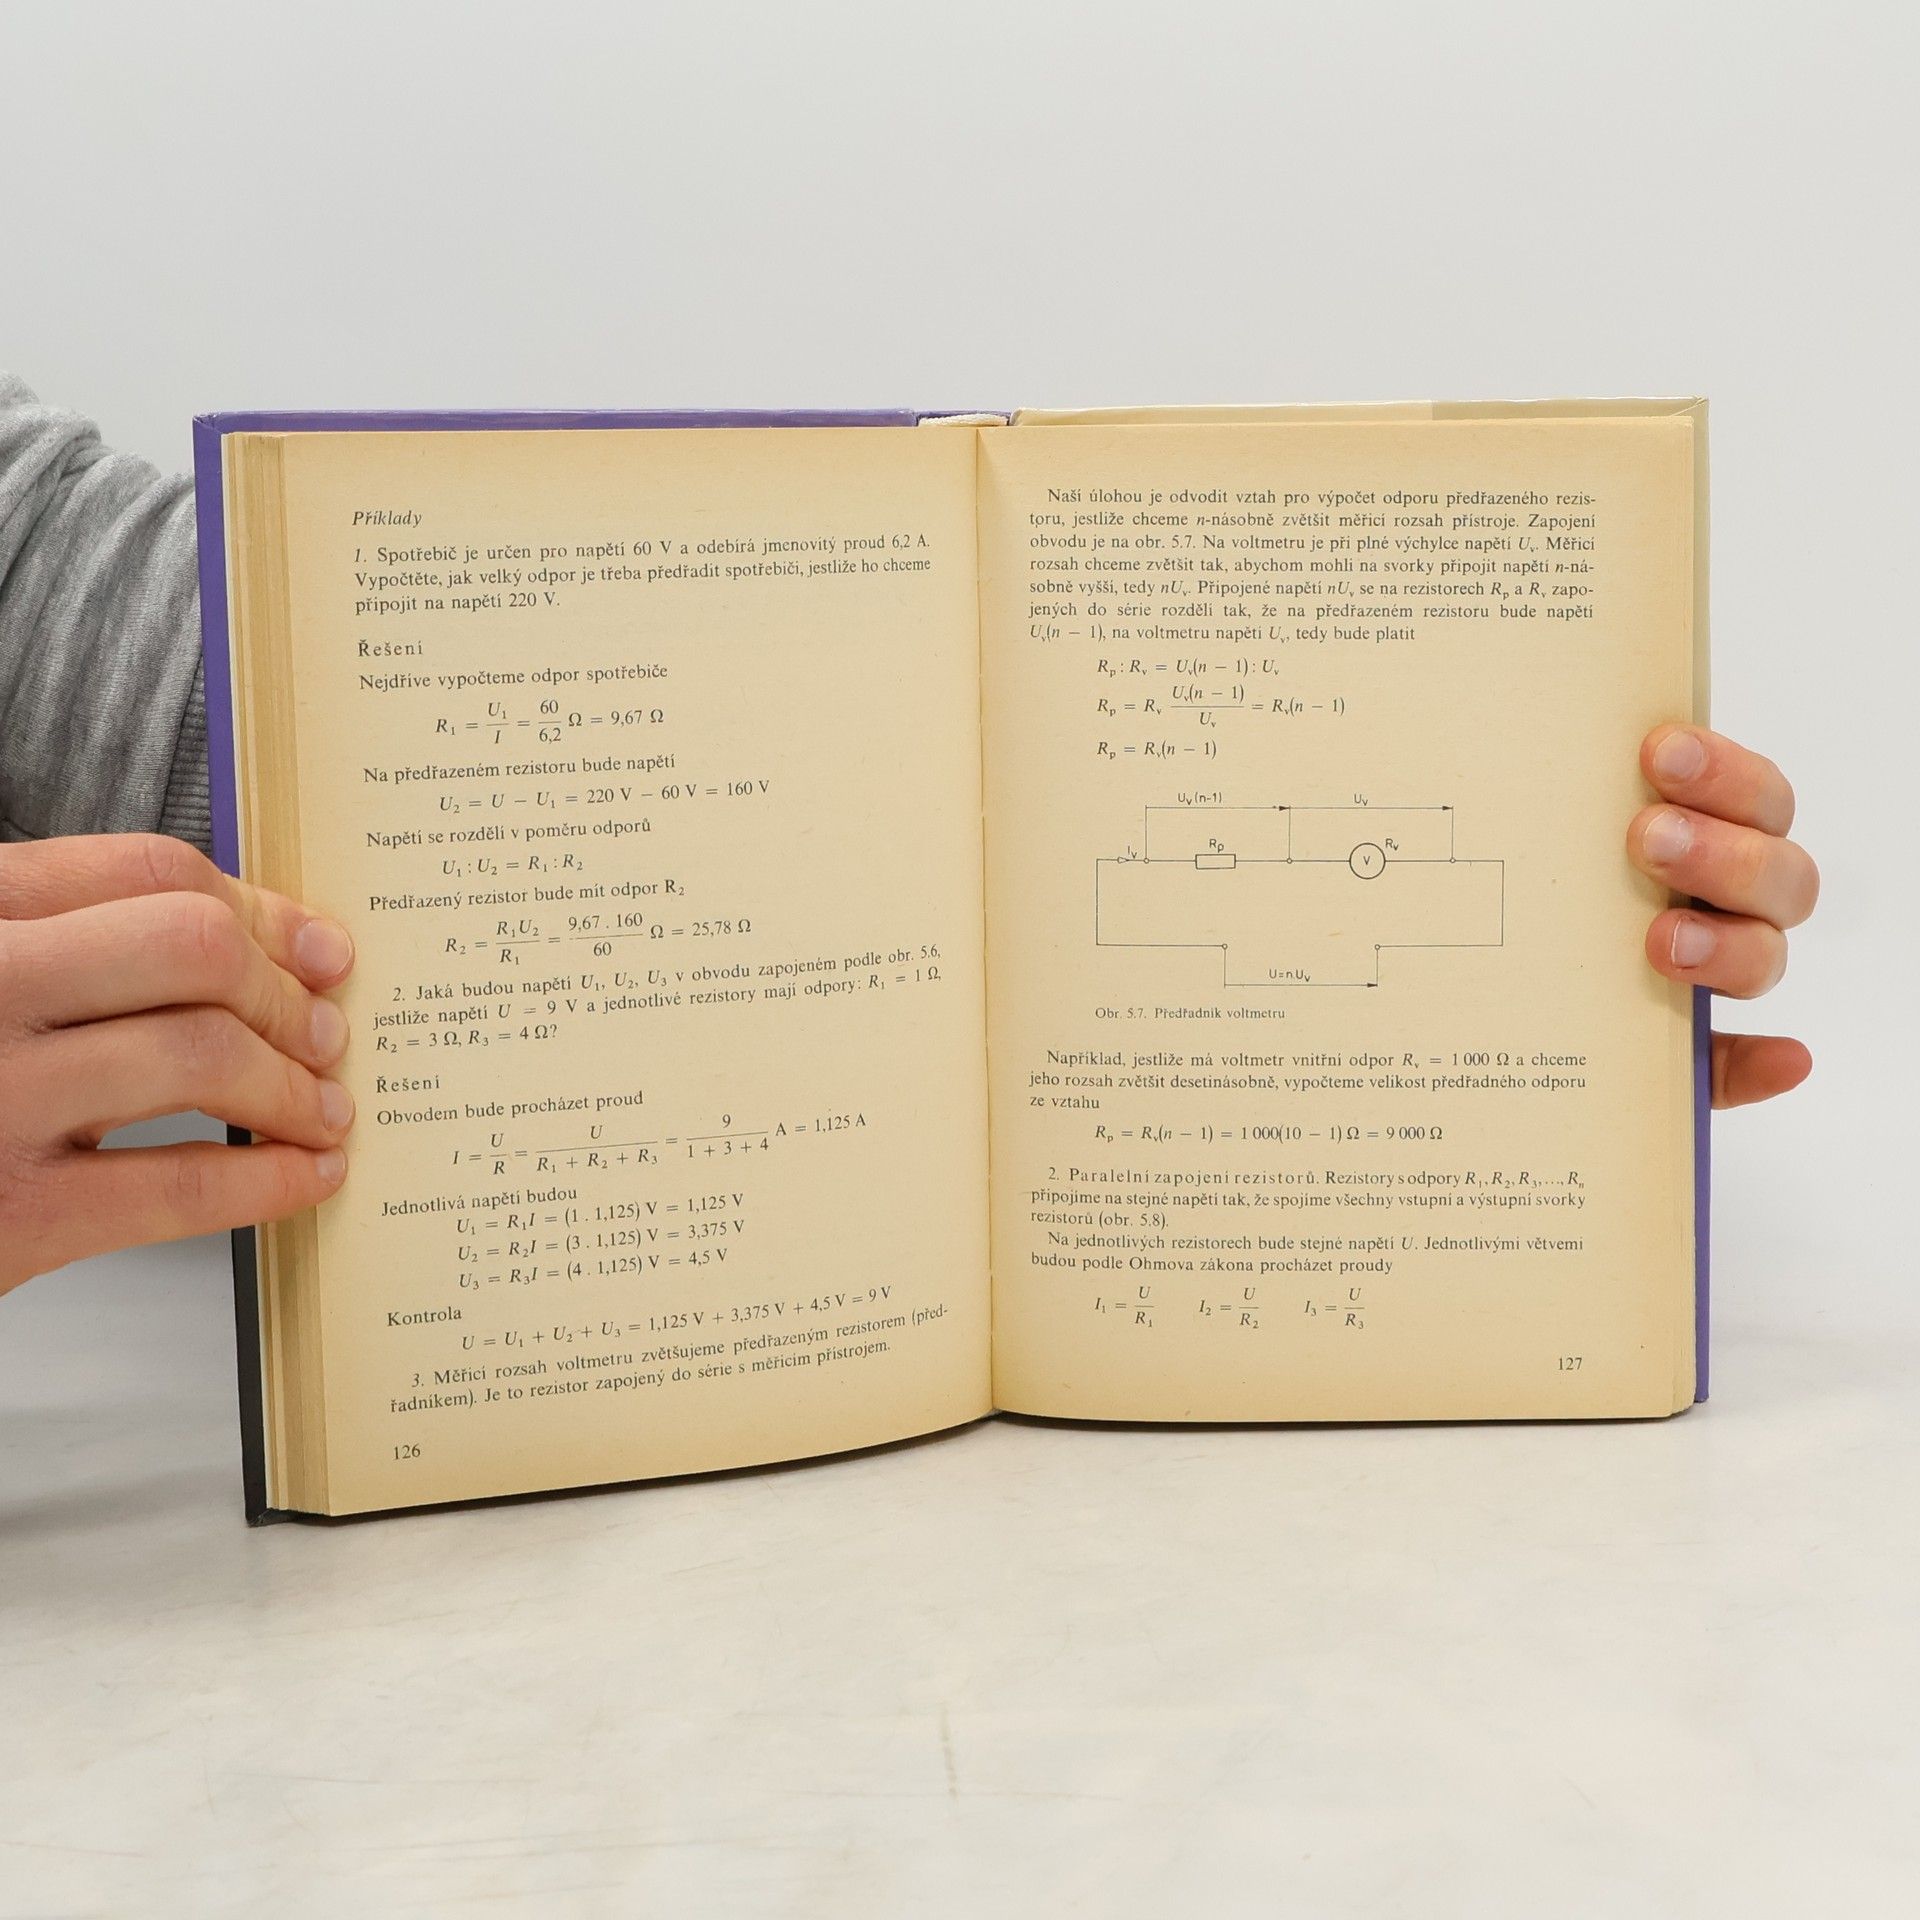 Příklady
1. Spotřebič je určen pro napětí 60 V a odebírá jmenovitý proud 6,2 A.
Vypočtěte, jak velký odpor je třeba předřadit spotřebiči, jestliže ho chceme
připojit na napětí 220 V.
Řešení
Nejdříve vypočteme odpor spotřebiče
R₁ = U₁/I = 60/6,2 Ω = 9,67 Ω
Na předřazeném rezistoru bude napětí
U₂ = U − U₁ = 220 V − 60 V = 160 V
Napětí se rozdělí v poměru odporů
U₁ : U₂ = R₁ : R₂
Předřazený rezistor bude mít odpor R₂
R₂ = R₁U₂/R₁ = 9,67 . 160/60 Ω = 25,78 Ω
2. Jaká budou napětí U₁, U₂, U₃ v obvodu zapojeném podle obr. 5.6,
jestliže napětí U = 9 V a jednotlivé rezistory mají odpory: R₁ = 1 Ω,
R₂ = 3 Ω, R₃ = 4 Ω?
Řešení
Obvodem bude procházet proud
I = U/R = U/(R₁ + R₂ + R₃) = 9/(1 + 3 + 4) A = 1,125 A
Jednotlivá napětí budou
U₁ = R₁I = (1 . 1,125) V = 1,125 V
U₂ = R₂I = (3 . 1,125) V = 3,375 V
U₃ = R₃I = (4 . 1,125) V = 4,5 V
Kontrola
U = U₁ + U₂ + U₃ = 1,125 V + 3,375 V + 4,5 V = 9 V
3. Měřicí rozsah voltmetru zvětšujeme předřazeným rezistorem (před-
řadníkem). Je to rezistor zapojený do série s měřicím přístrojem.
126
Naší úlohou je odvodit vztah pro výpočet odporu předřazeného rezis-
toru, jestliže chceme n-násobně zvětšit měřicí rozsah přístroje. Zapojení
obvodu je na obr. 5.7. Na voltmetru je při plné výchylce napětí Uᵥ. Měřicí
rozsah chceme zvětšit tak, abychom mohli na svorky připojit napětí n-ná-
sobně vyšší, tedy nUᵥ. Připojené napětí nUᵥ se na rezistorech Rₚ a Rᵥ zapo-
jených do série rozdělí tak, že na předřazeném rezistoru bude napětí
Uᵥ(n − 1), na voltmetru napětí Uᵥ, tedy bude platit
Rₚ : Rᵥ = Uᵥ(n − 1) : Uᵥ
Rₚ = Rᵥ Uᵥ(n − 1)/Uᵥ = Rᵥ(n − 1)
Rₚ = Rᵥ(n − 1)
Uᵥ(n-1) Uᵥ
Iᵥ Rₚ V Rᵥ
U=n.Uᵥ
Obr. 5.7. Předřadník voltmetru
Například, jestliže má voltmetr vnitřní odpor Rᵥ = 1 000 Ω a chceme
jeho rozsah zvětšit desetinásobně, vypočteme velikost předřadného odporu
ze vztahu
Rₚ = Rᵥ(n − 1) = 1 000(10 − 1) Ω = 9 000 Ω
2. Paralelní zapojení rezistorů. Rezistory s odpory R₁, R₂, R₃, ..., Rₙ
připojíme na stejné napětí tak, že spojíme všechny vstupní a výstupní svorky
rezistorů (obr. 5.8).
Na jednotlivých rezistorech bude stejné napětí U. Jednotlivými větvemi
budou podle Ohmova zákona procházet proudy
I₁ = U/R₁ I₂ = U/R₂ I₃ = U/R₃
127